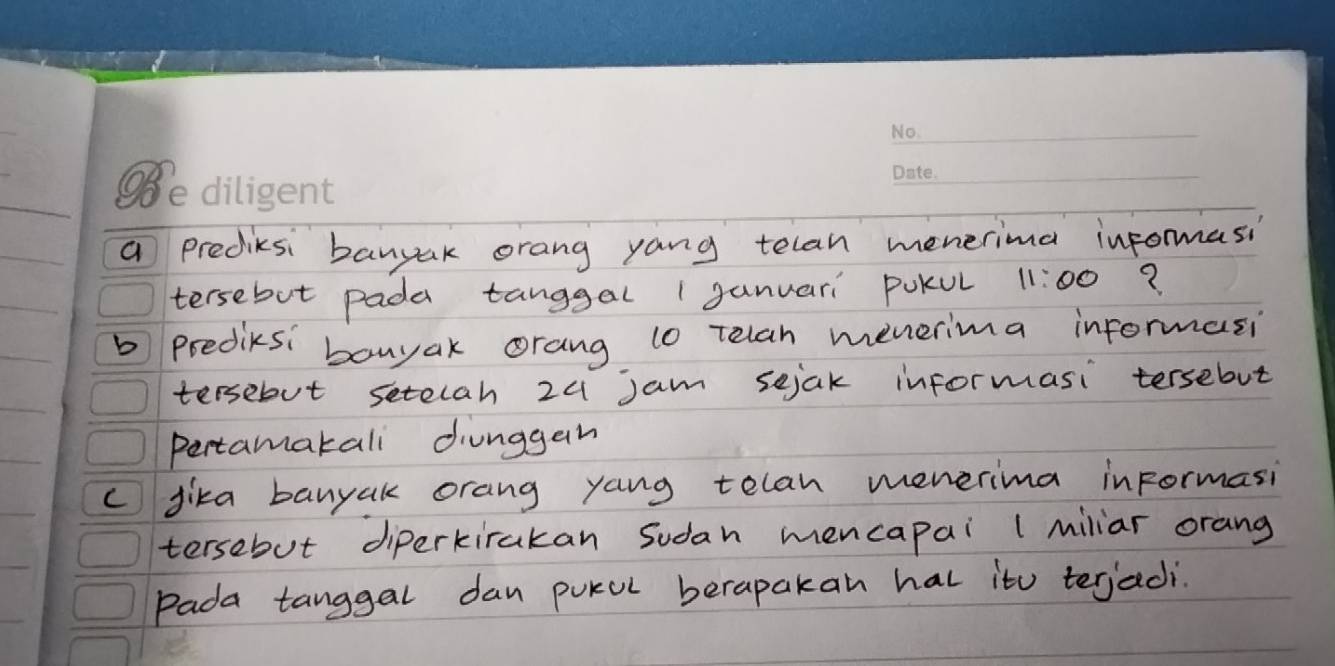 No.
Date.
Be diligent
a prediksi banyak orang yang telah menerima informasi
tersebut pada tanggal 1 januari pukul 11:00 ?
b prediksi banyak orang 10 telah menerima informasi
tersebut setelah 24 jam sejak informasi tersebut
pertamakali diunggah
c jika banyak orang yang telah menerima informasi
tersebut diperkirakan sudah mencapai 1 miliar orang
pada tanggal dan pukul berapakah hal itu terjadi.